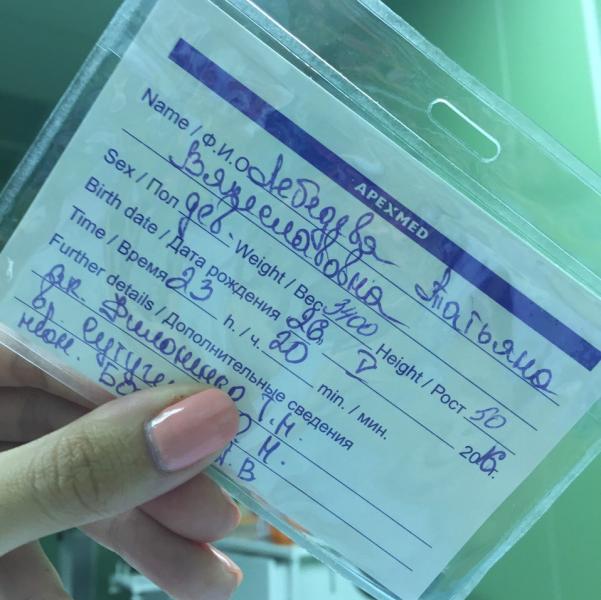 APEXMED
Name / Ф.И.О Лебедева Татьяна
Вячеславовна
Sex / Пол дев. Weight / Вес 3400 Height / Рост 50
Birth date / Дата рождения 28. V 2016г.
Time / Время 23 h. / ч. 20 min. / мин.
Further details / Дополнительные сведения
ак. Филоненко Т.Н.
вр. Н.
неон. В